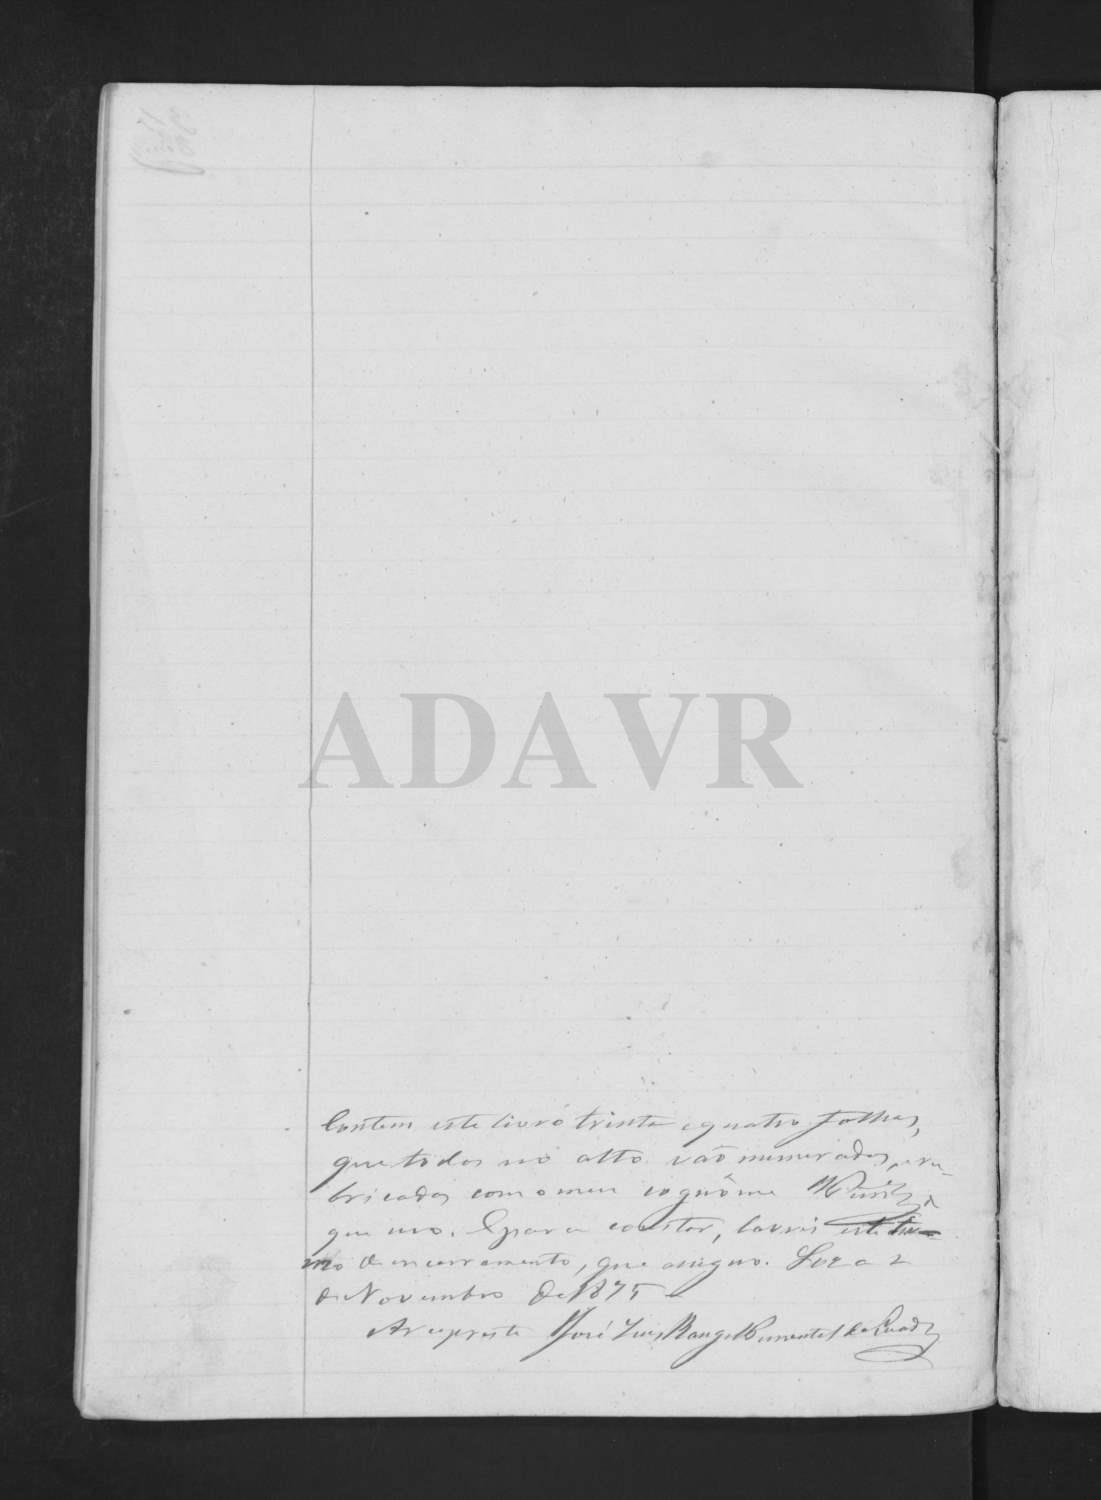 ADAVR
Contem este livro trinta e quatro folhas,
que todas no alto vão numeradas, e ru-
bricadas com o meu cognôme
que uso. E para constar, lavrei este ter-
mo de encerramento, que assigno. 2
de Novembro de 1875
Arcypreste José Luis Rangel